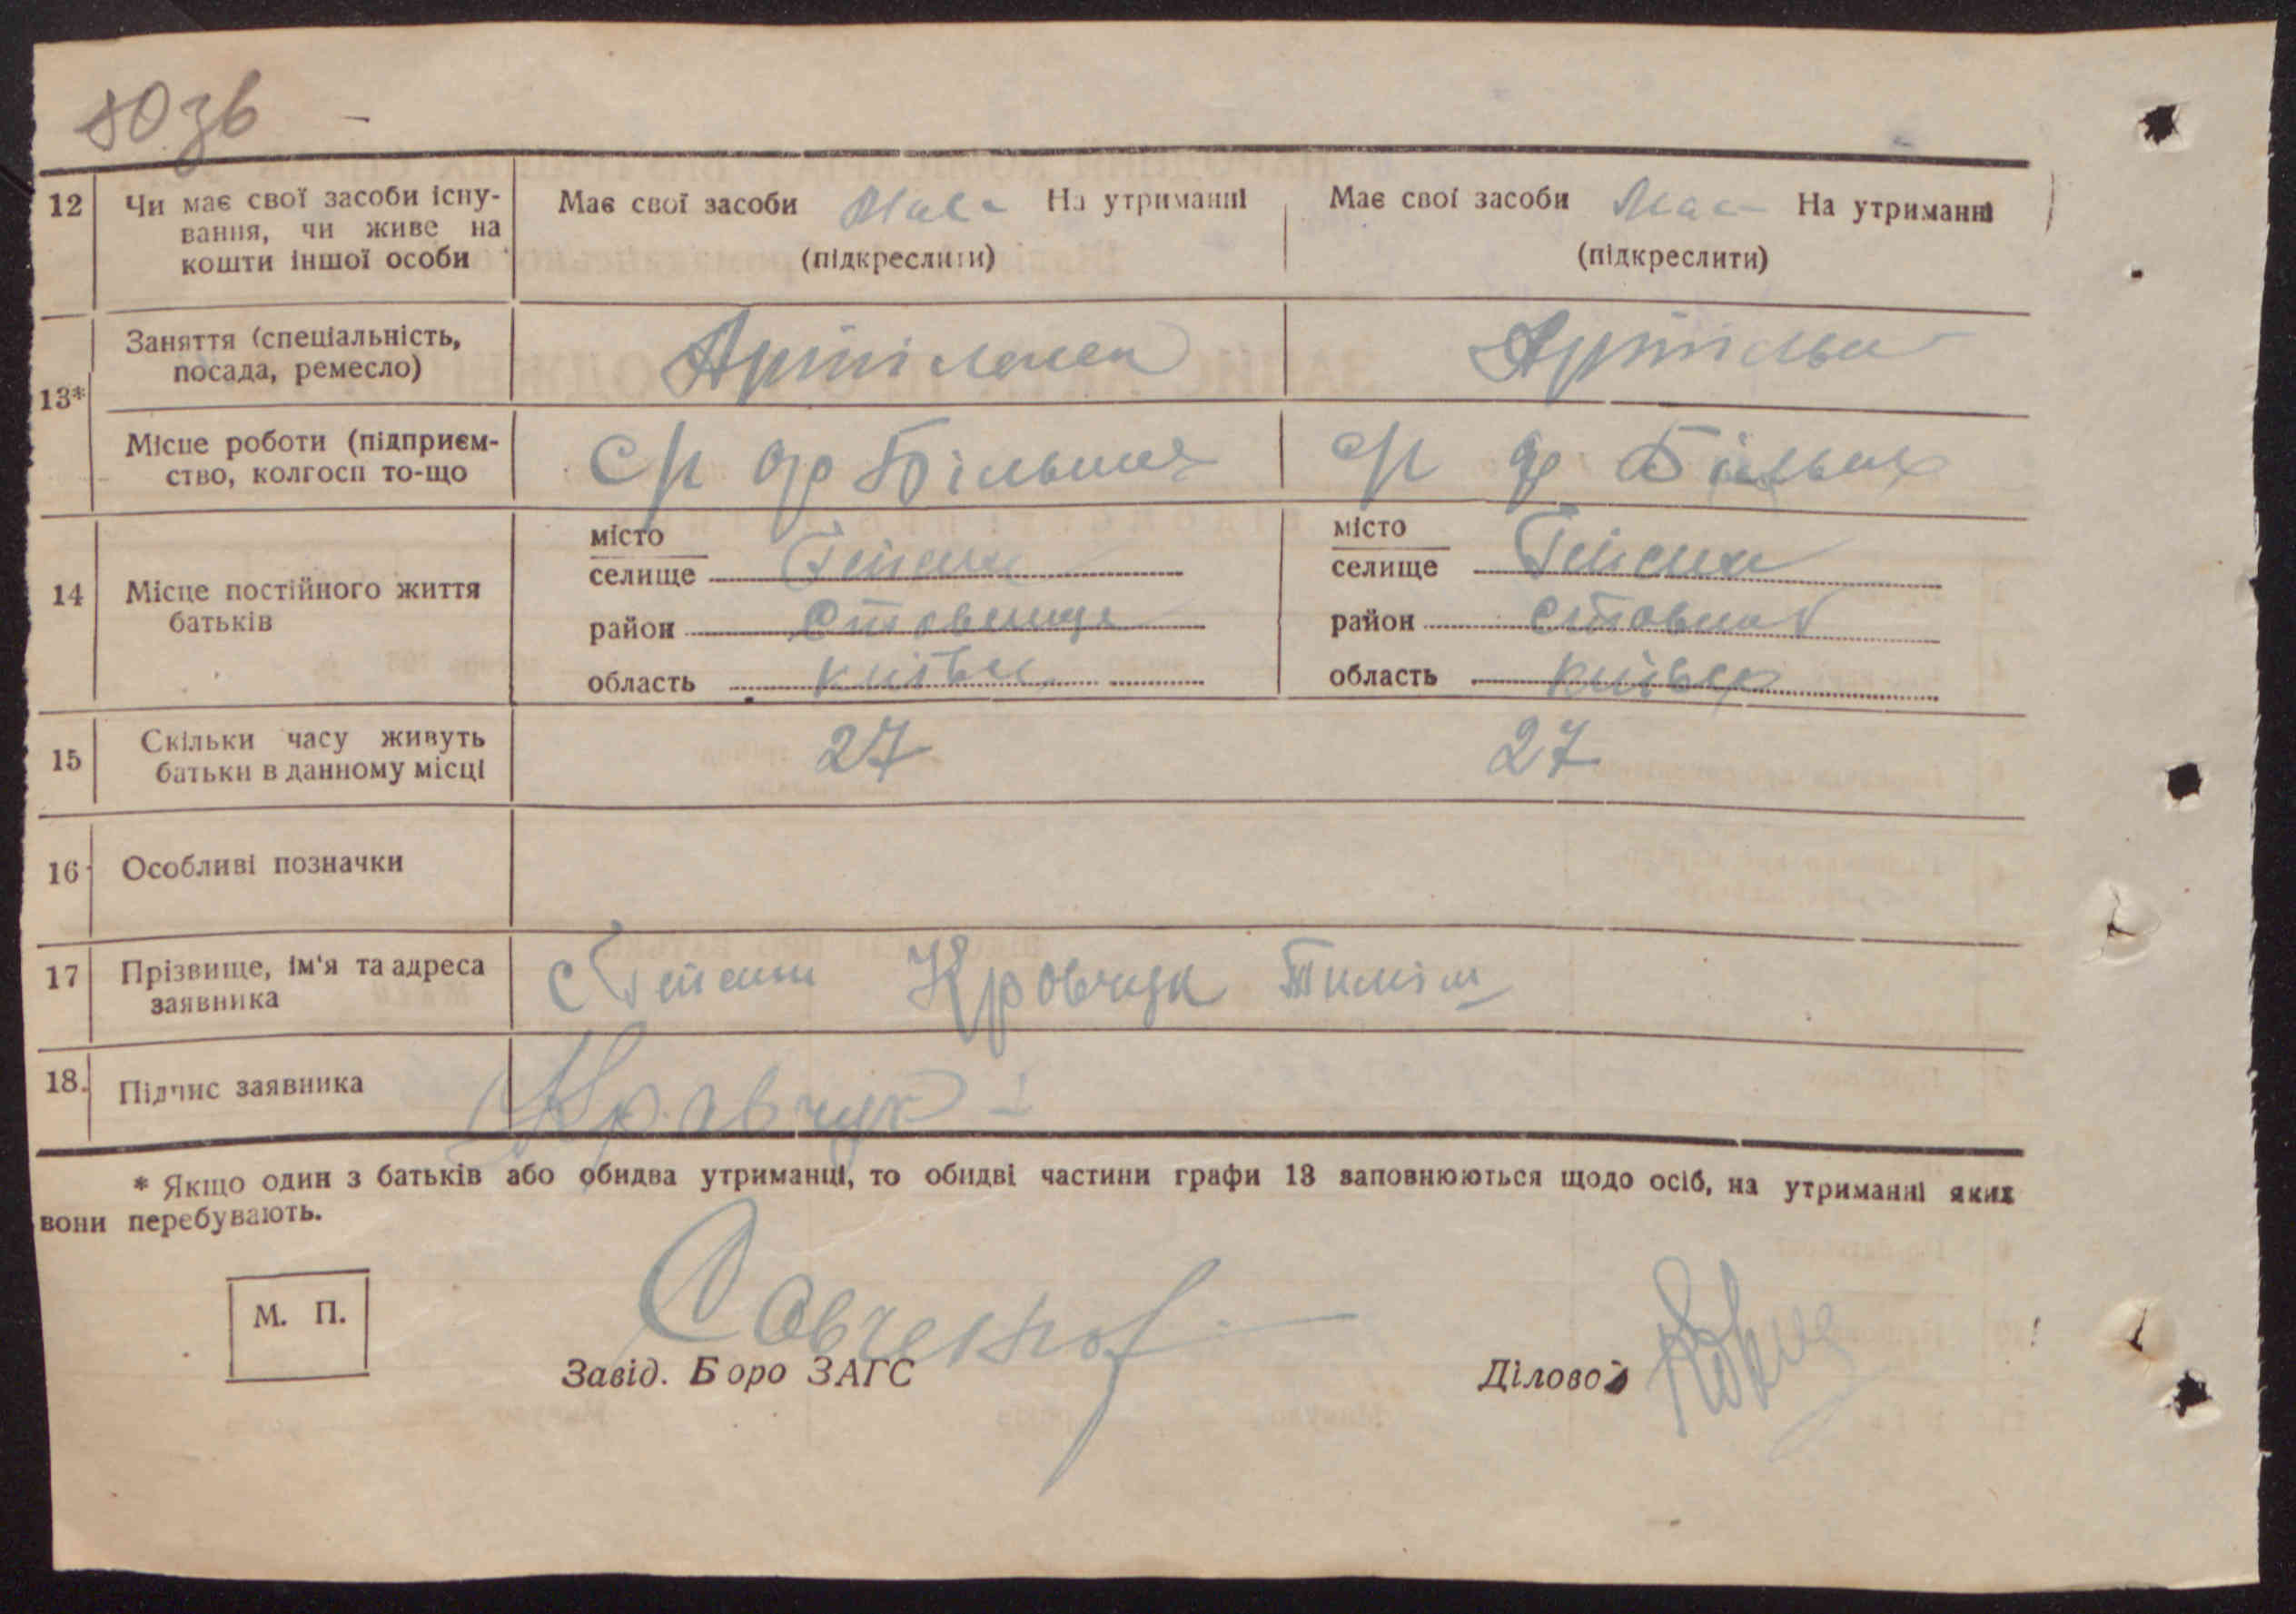 80зв
12 Чи має свої засоби існу-
вання, чи живе на
кошти іншої особи
Має свої засоби Має На утриманні
(підкреслити)
Має свої засоби Має На утриманні
(підкреслити)
13* Заняття (спеціальність,
посада, ремесло)
Місце роботи (підприєм-
ство, колгосп то-що
с/г Більшов
с/г Більшов
14 Місце постійного життя
батьків
місто
селище
район Ставище
область Київськ
місто
селище
район Ставищ
область Київськ
15 Скільки часу живуть
батьки в данному місці
27 27
16 Особливі позначки
17 Прізвище, ім'я та адреса
заявника
Кровчук
18. Підпис заявника
Кравчук
* Якщо один з батьків або обидва утриманці, то обидві частини графи 13 заповнюються щодо осіб, на утриманні яких
вони перебувають.
М. П.
Завід. Боро ЗАГС Савченко
Діловод